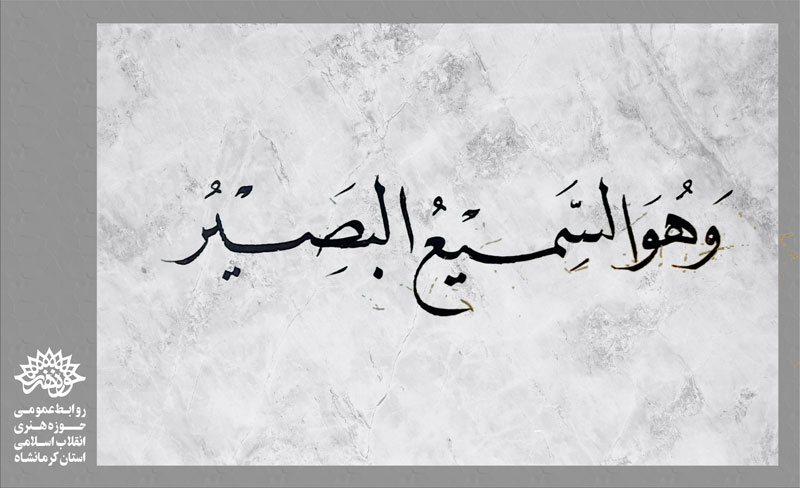 وَهُوَ السَّمِيْعُ البَصِيْرُ
حوزه هنری
روابط عمومی
حوزه هنری
انقلاب اسلامی
استان کرمانشاه